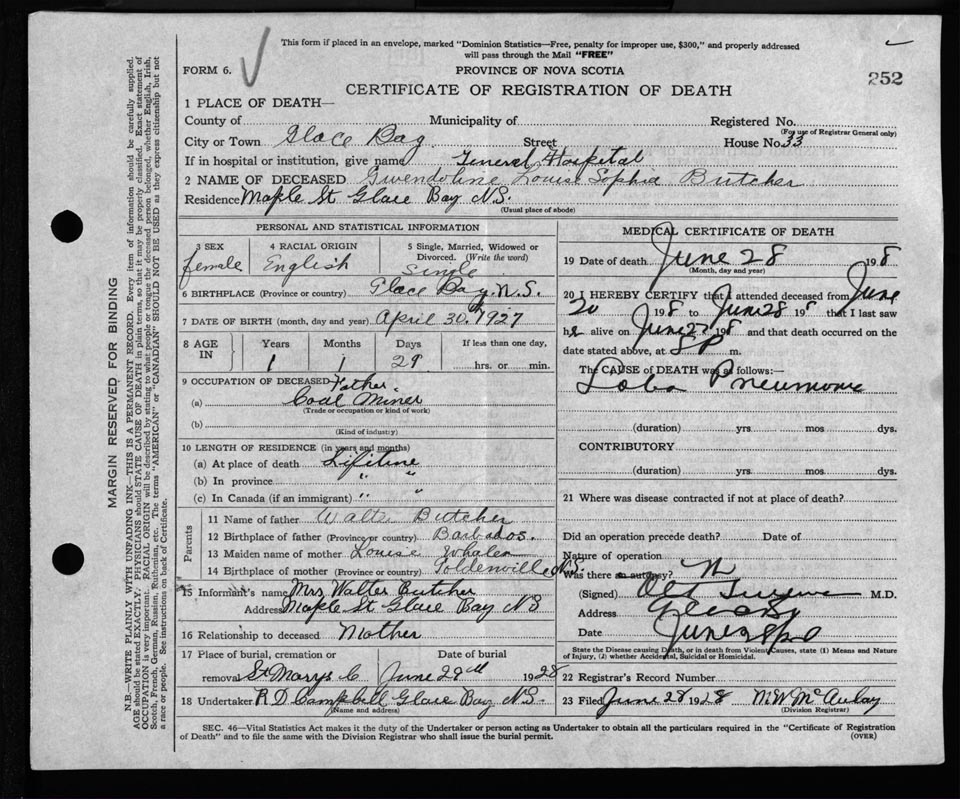 This form if placed in an envelope, marked "Dominion Statistics—Free, penalty for improper use, $300," and properly addressed
will pass through the Mail "FREE"
FORM 6.
PROVINCE OF NOVA SCOTIA
252
CERTIFICATE OF REGISTRATION OF DEATH
1 PLACE OF DEATH—
County of Municipality of Registered No.
(For use of Registrar General only)
City or Town Glace Bay Street House No. 33
If in hospital or institution, give name General Hospital
2 NAME OF DECEASED Gwendoline Louise Sophia Butcher
Residence Maple St Glace Bay N.S.
(Usual place of abode)
PERSONAL AND STATISTICAL INFORMATION
3 SEX 4 RACIAL ORIGIN 5 Single, Married, Widowed or
Divorced. (Write the word)
female English Single
6 BIRTHPLACE (Province or country) Glace Bay, N.S.
7 DATE OF BIRTH (month, day and year) April 30, 1927
8 AGE IN Years Months Days If less than one day,
1 1 29 hrs. or min.
9 OCCUPATION OF DECEASED Father
(a) Coal Miner
(Trade or occupation or kind of work)
(b)
(Kind of industry)
10 LENGTH OF RESIDENCE (in years and months)
(a) At place of death Lifetime
(b) In province " "
(c) In Canada (if an immigrant) " "
Parents
11 Name of father Walter Butcher
12 Birthplace of father (Province or country) Barbados.
13 Maiden name of mother Louise Whalen
14 Birthplace of mother (Province or country) Goldenville N.S.
15 Informant's name Mrs Walter Butcher
Address Maple St Glace Bay NS
16 Relationship to deceased Mother
17 Place of burial, cremation or Date of burial
removal St Marys C June 29th 1928
18 Undertaker R D Campbell Glace Bay N.S.
(Name and address)
MEDICAL CERTIFICATE OF DEATH
19 Date of death June 28 198
(Month, day and year)
20 I HEREBY CERTIFY that I attended deceased from June
20 198 to June 28 198 that I last saw
h alive on June 27 198 and that death occurred on the
date stated above, at 5 P m.
The CAUSE OF DEATH was as follows:—
Loba Pneumonia
(duration) yrs. mos dys.
CONTRIBUTORY
(duration) yrs. mos. dys.
21 Where was disease contracted if not at place of death?
Did an operation precede death? Date of
Nature of operation
Was there an autopsy? N
(Signed) M.D.
Address Glace Bay
Date June 28
State the Disease causing Death, or in death from Violent Causes, state (1) Means and Nature
of Injury, (2) whether Accidental, Suicidal or Homicidal.
22 Registrar's Record Number
23 Filed June 28 1928 M.W. McAulay
(Division Registrar)
SEC. 46—Vital Statistics Act makes it the duty of the Undertaker or person acting as Undertaker to obtain all the particulars required in the "Certificate of Registration
of Death" and to file the same with the Division Registrar who shall issue the burial permit.
(OVER)
MARGIN RESERVED FOR BINDING
N.B.—WRITE PLAINLY WITH UNFADING INK—THIS IS A PERMANENT RECORD. Every item of information should be carefully supplied.
AGE should be stated EXACTLY. PHYSICIANS should STATE CAUSE OF DEATH in plain terms, so that it may be properly classified. Exact statement of
OCCUPATION is very important. RACIAL ORIGIN will be described by stating to what people or tongue the deceased person belonged, whether English, Irish,
Scotch, French, German, Russian, Ruthenian, etc. The terms "AMERICAN" or "CANADIAN" SHOULD NOT BE USED as they express citizenship but not
a race or people. See instructions on back of Certificate.